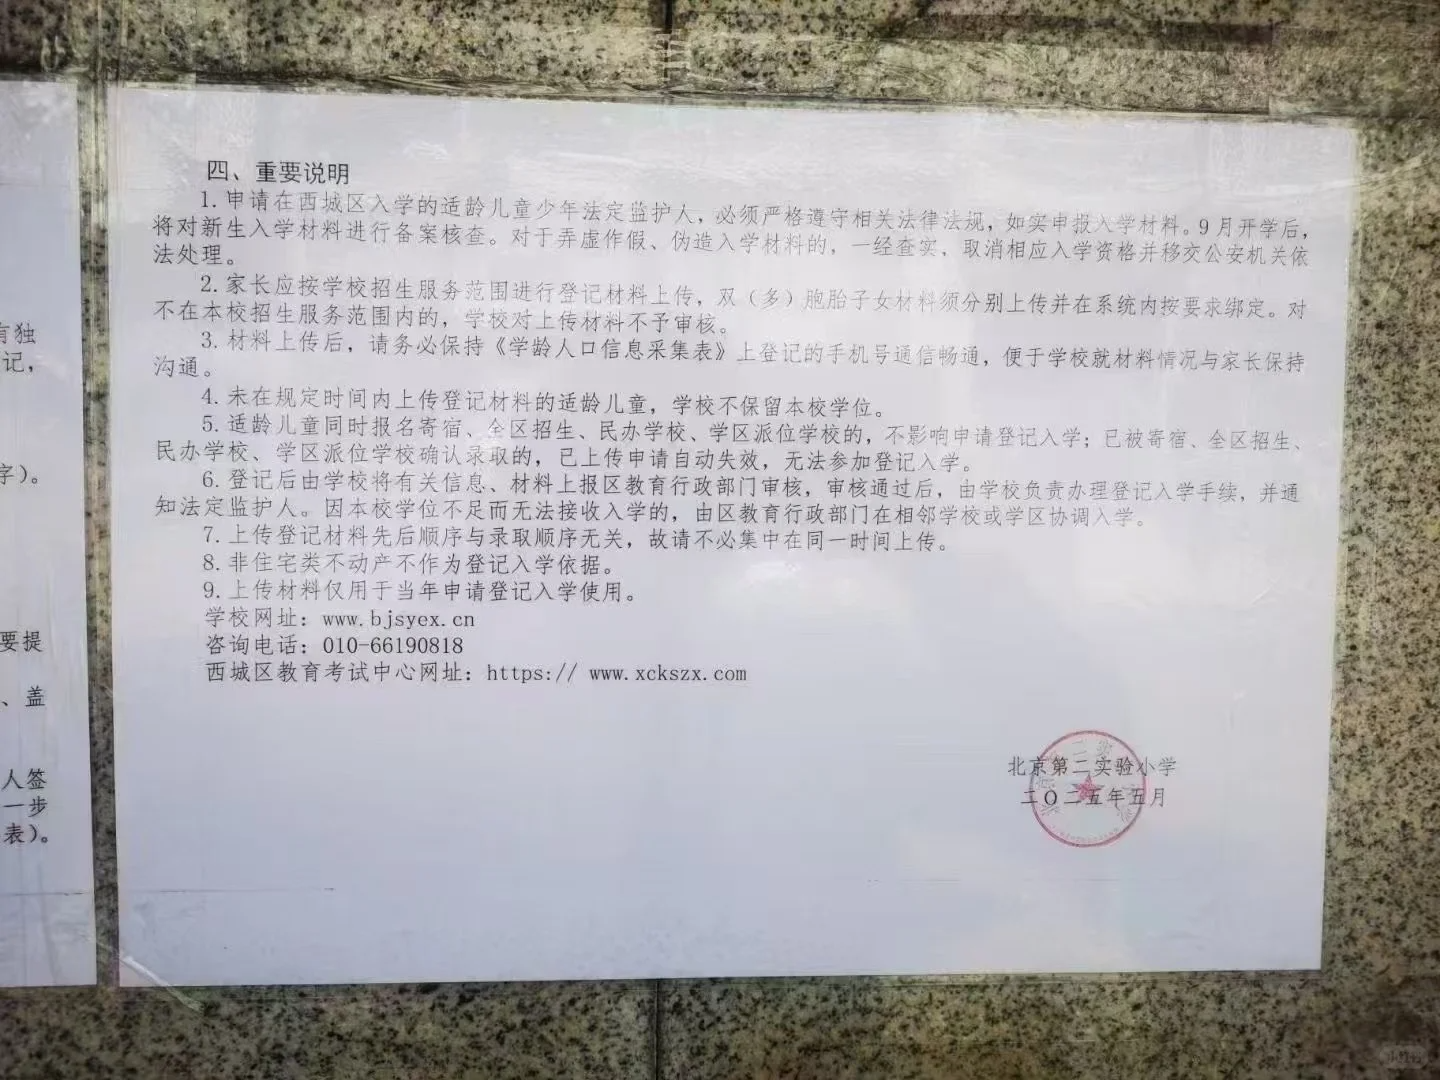 有独
记，
字）。
要提
、盖
人签
一步
表）。
四、重要说明
1. 申请在西城区入学的适龄儿童少年法定监护人，必须严格遵守相关法律法规，如实申报入学材料。9月开学后，
将对新生入学材料进行备案核查。对于弄虚作假、伪造入学材料的，一经查实，取消相应入学资格并移交公安机关依
法处理。
2. 家长应按学校招生服务范围进行登记材料上传，双（多）胞胎子女材料须分别上传并在系统内按要求绑定。对
不在本校招生服务范围内的，学校对上传材料不予审核。
3. 材料上传后，请务必保持《学龄人口信息采集表》上登记的手机号通信畅通，便于学校就材料情况与家长保持
沟通。
4. 未在规定时间内上传登记材料的适龄儿童，学校不保留本校学位。
5. 适龄儿童同时报名寄宿、全区招生、民办学校、学区派位学校的，不影响申请登记入学；已被寄宿、全区招生、
民办学校、学区派位学校确认录取的，已上传申请自动失效，无法参加登记入学。
6. 登记后由学校将有关信息、材料上报区教育行政部门审核，审核通过后，由学校负责办理登记入学手续，并通
知法定监护人。因本校学位不足而无法接收入学的，由区教育行政部门在相邻学校或学区协调入学。
7. 上传登记材料先后顺序与录取顺序无关，故请不必集中在同一时间上传。
8. 非住宅类不动产不作为登记入学依据。
9. 上传材料仅用于当年申请登记入学使用。
学校网址：www.bjsyex.cn
咨询电话：010-66190818
西城区教育考试中心网址：https:// www.xckszx.com
北京第二实验小学
二〇二五年五月
小红书